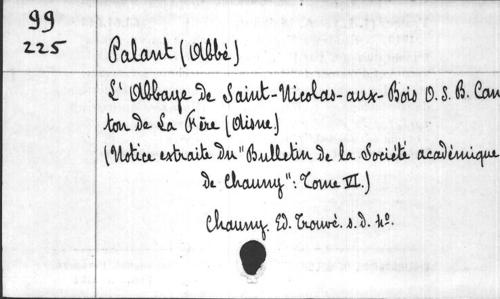 99
225
Palant (Abbé)
L'Abbaye de Saint-Nicolas-aux-Bois O.S.B. Can
ton de La Fère (Aisne.)
(Notice extraite du "Bulletin de la Société académique
de Chauny": Tome VI.)
Chauny. Ed. Trouvé. s.d. 4º.